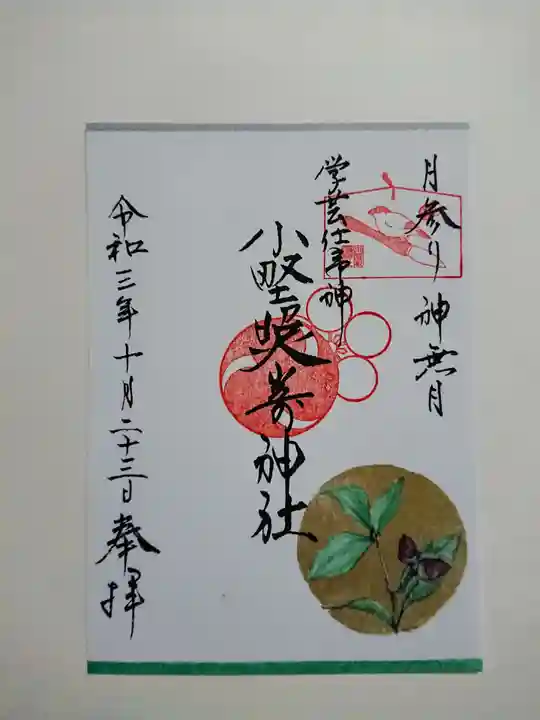 月参り 神無月
学芸仕事神
小野照崎神社
令和三年十月二十三日 奉拝